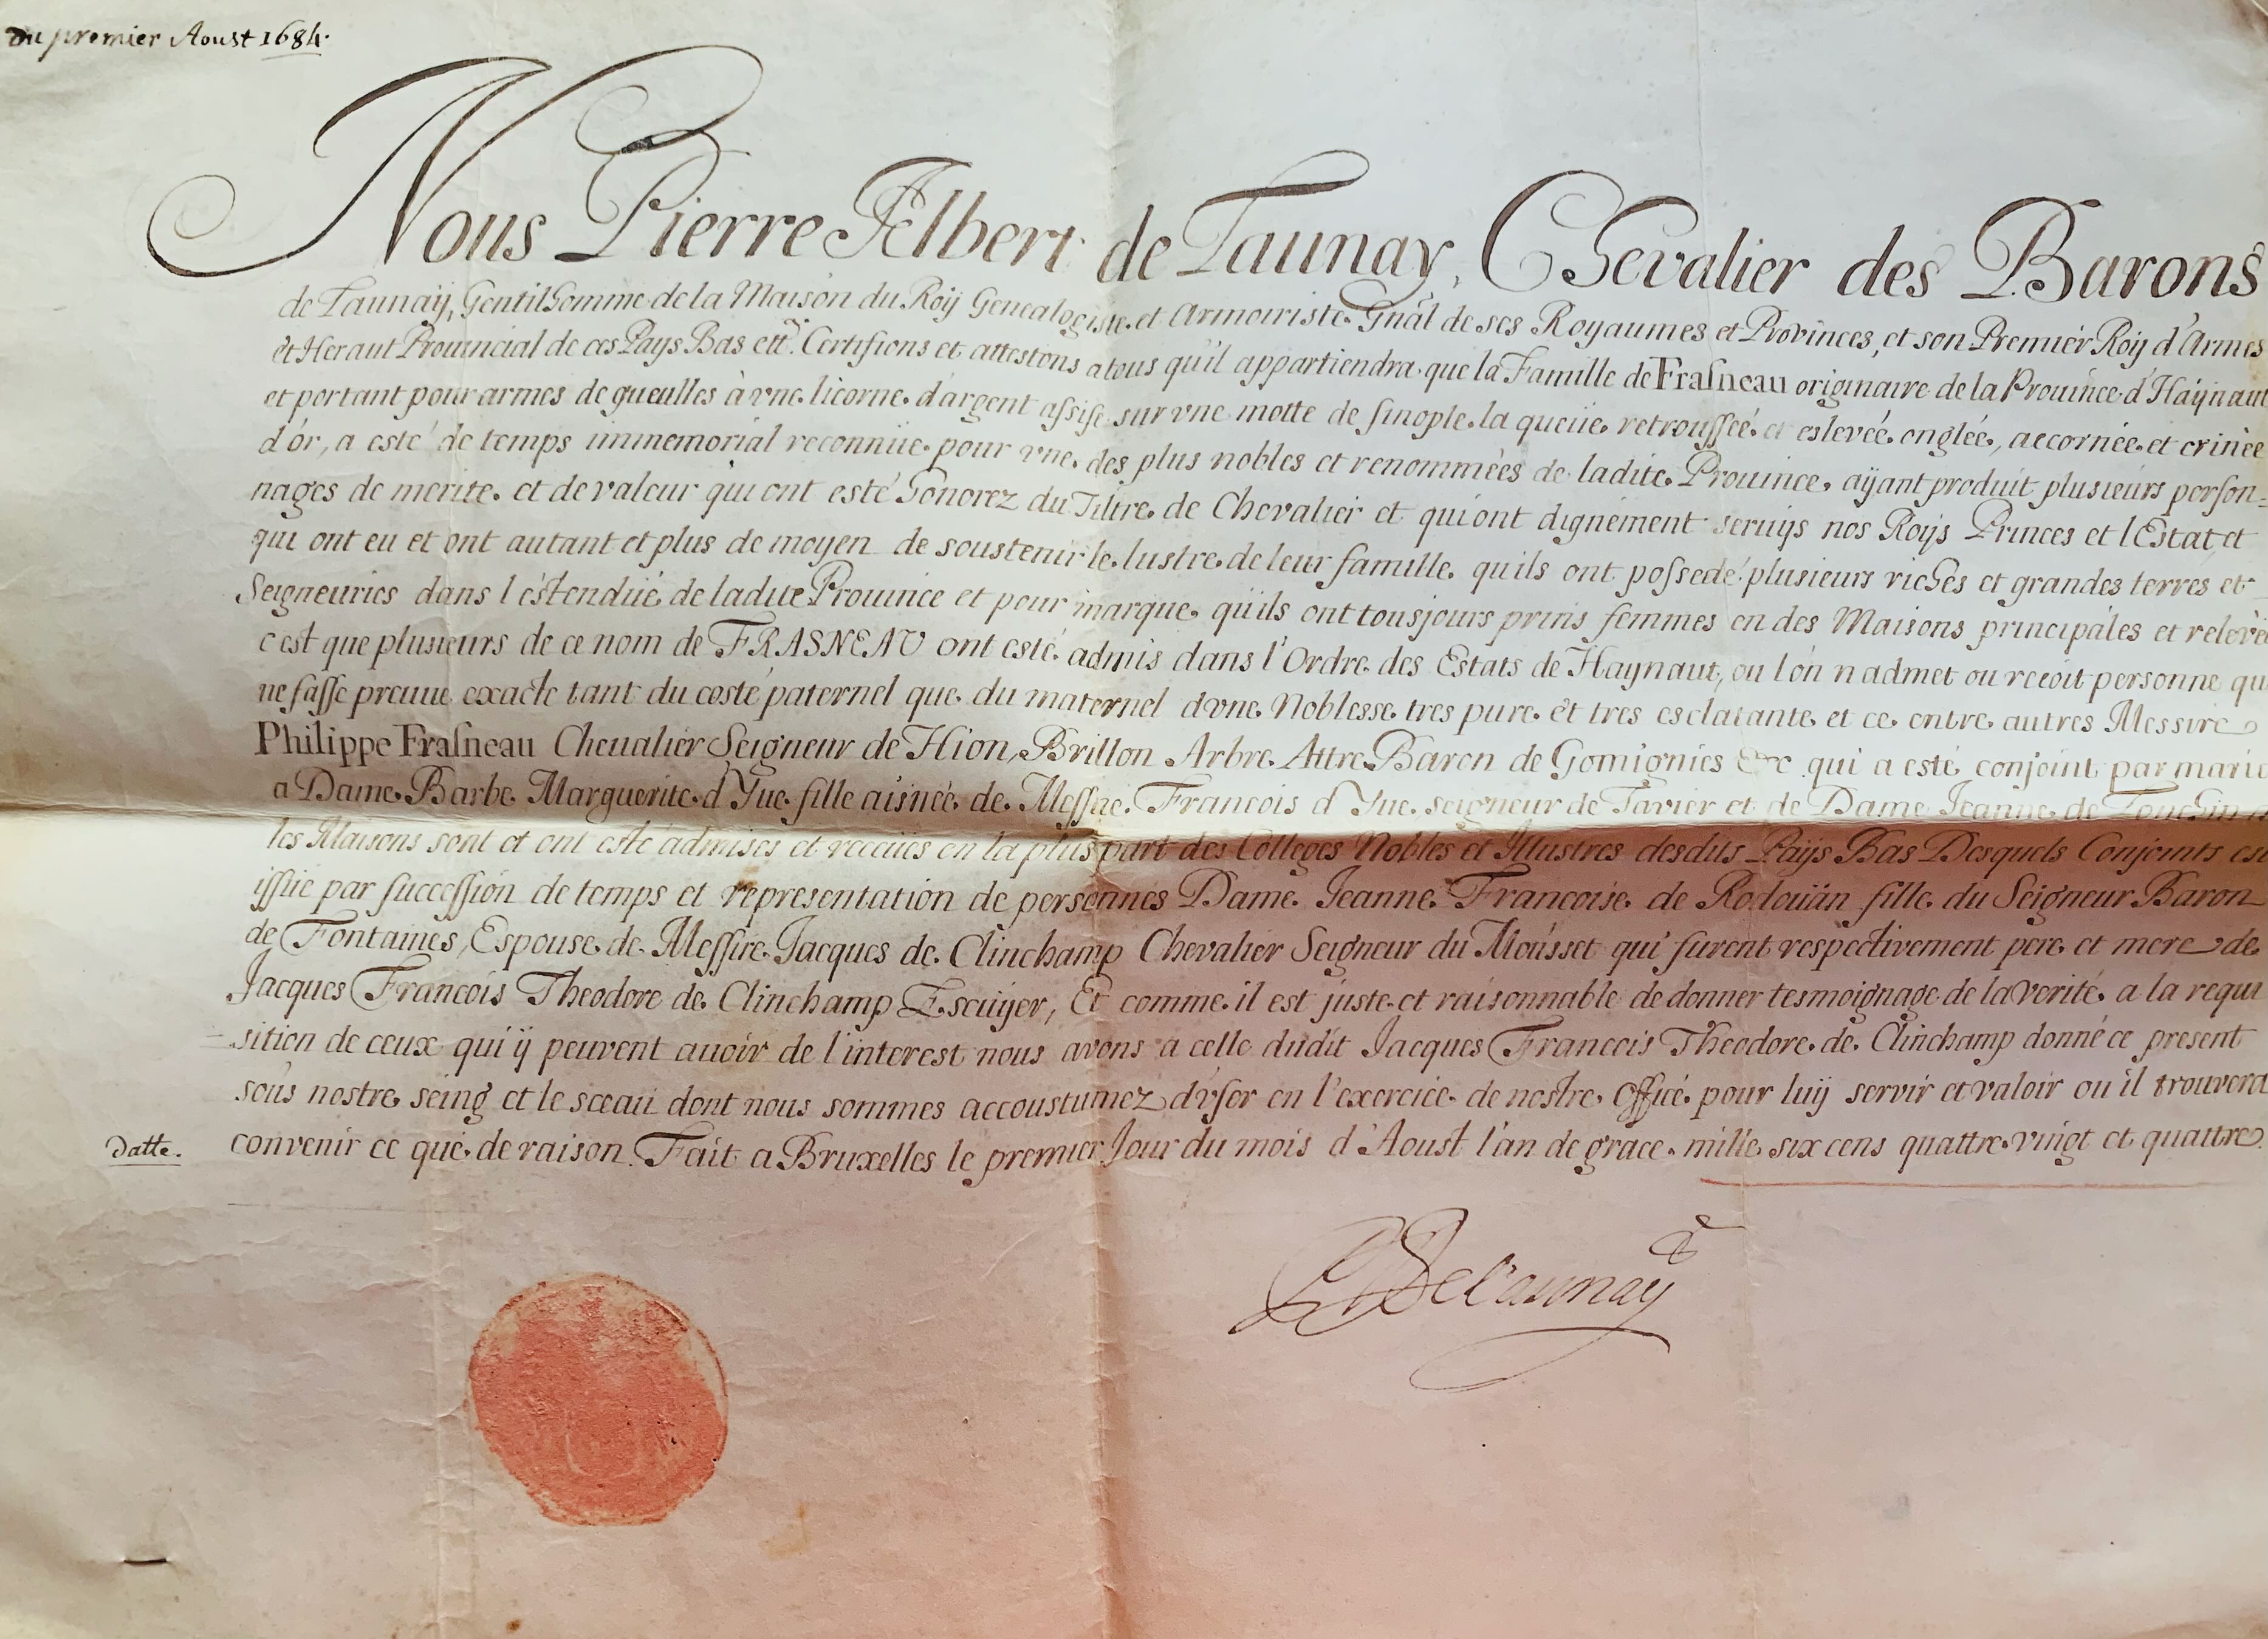 Du premier Aoust 1684.
Nous Pierre Albert de Launay, Chevalier des Barons
de Launaÿ, Gentilhomme de la Maison du Roÿ Genealogiste et Armoiriste Gnâl de ses Royaumes et Provinces, et son Premier Roÿ d'Armes
et Heraut Prouincial de ces Pays Bas ett.ᵃ Certifions et attestons a tous qu'il appartiendra que la Famille de Frasneau originaire de la Prouince d'Haÿnaut
et portant pour armes de gueulles à vne licorne d'argent assise sur vne motte de sinople la queüe retroussée et eslevée onglée, accornée et crinée
d'ór, a esté de temps immemorial reconnüe pour vne des plus nobles et renommées de ladite Prouince, aÿant produit plusieurs person=
nages de merite et de valeur qui ont esté honorez du Tiltre de Chevalier et qui ont dignement seruÿs nos Roÿs Princes et l'Estat, et
qui ont eu et ont autant et plus de moyen de soustenir le lustre de leur famille qu'ils ont possedé plusieurs riches et grandes terres et
Seigneuries dans l'éstendüe de ladite Prouince et pour marque qu'ils ont tousjours prins femmes en des Maisons principales et relevée
c'est que plusieurs de ce nom de FRASNEAU ont esté admis dans l'Ordre des Estats de Haynaut, ou l'ón n'admet ou recoit personne qui
ne fasse preuue exacte tant du costé paternel que du maternel d'vne Noblesse tres pure et tres esclatante et ce entre autres Messire
Philippe Frasneau Cheualier Seigneur de Hion, Brillon Arbre Attre Baron de Gomignies &c qui a esté conjoint par maria
a Dame Barbe Marguerite d'Yue fille aisnée de Messire Francois d'Yue seigneur de Tavier et de Dame Jeanne de
les Maisons sont et ont esté admises et receües en la plus part des Colleges Nobles et Illustres desdits Paÿs Bas Desquels Conjoints est
issüe par succession de temps et representation de personnes Dame Jeanne Francoise de Rodoüan fille du Seigneur Baron
de Fontaines, Espouse de Messire Jacques de Clinchamp Chevalier Seigneur du Mousset qui furent respectivement pere et mere de
Jacques Francois Theodore de Clinchamp Escuÿer, Et comme il est juste et raisonnable de donner tesmoignage de la verité a la requi
sition de ceux qui ÿ peuvent auoir de l'interest nous avons a celle dudit Jacques Francois Theodore de Clinchamp donné ce present
sous nostre seing et le sceau dont nous sommes accoustumez d'vser en l'exercice de nostre office pour luÿ servir et valoir ou il trouvera
Datte. convenir ce que de raison. Fait a Bruxelles le premier Jour du mois d'Aoust l'an de grace mille six cens quattre vingt et quattre
Delaunaÿ